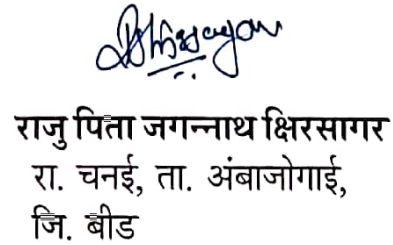 राजु पिता जगन्नाथ क्षिरसागर
रा. चनई, ता. अंबाजोगाई,
जि. बीड